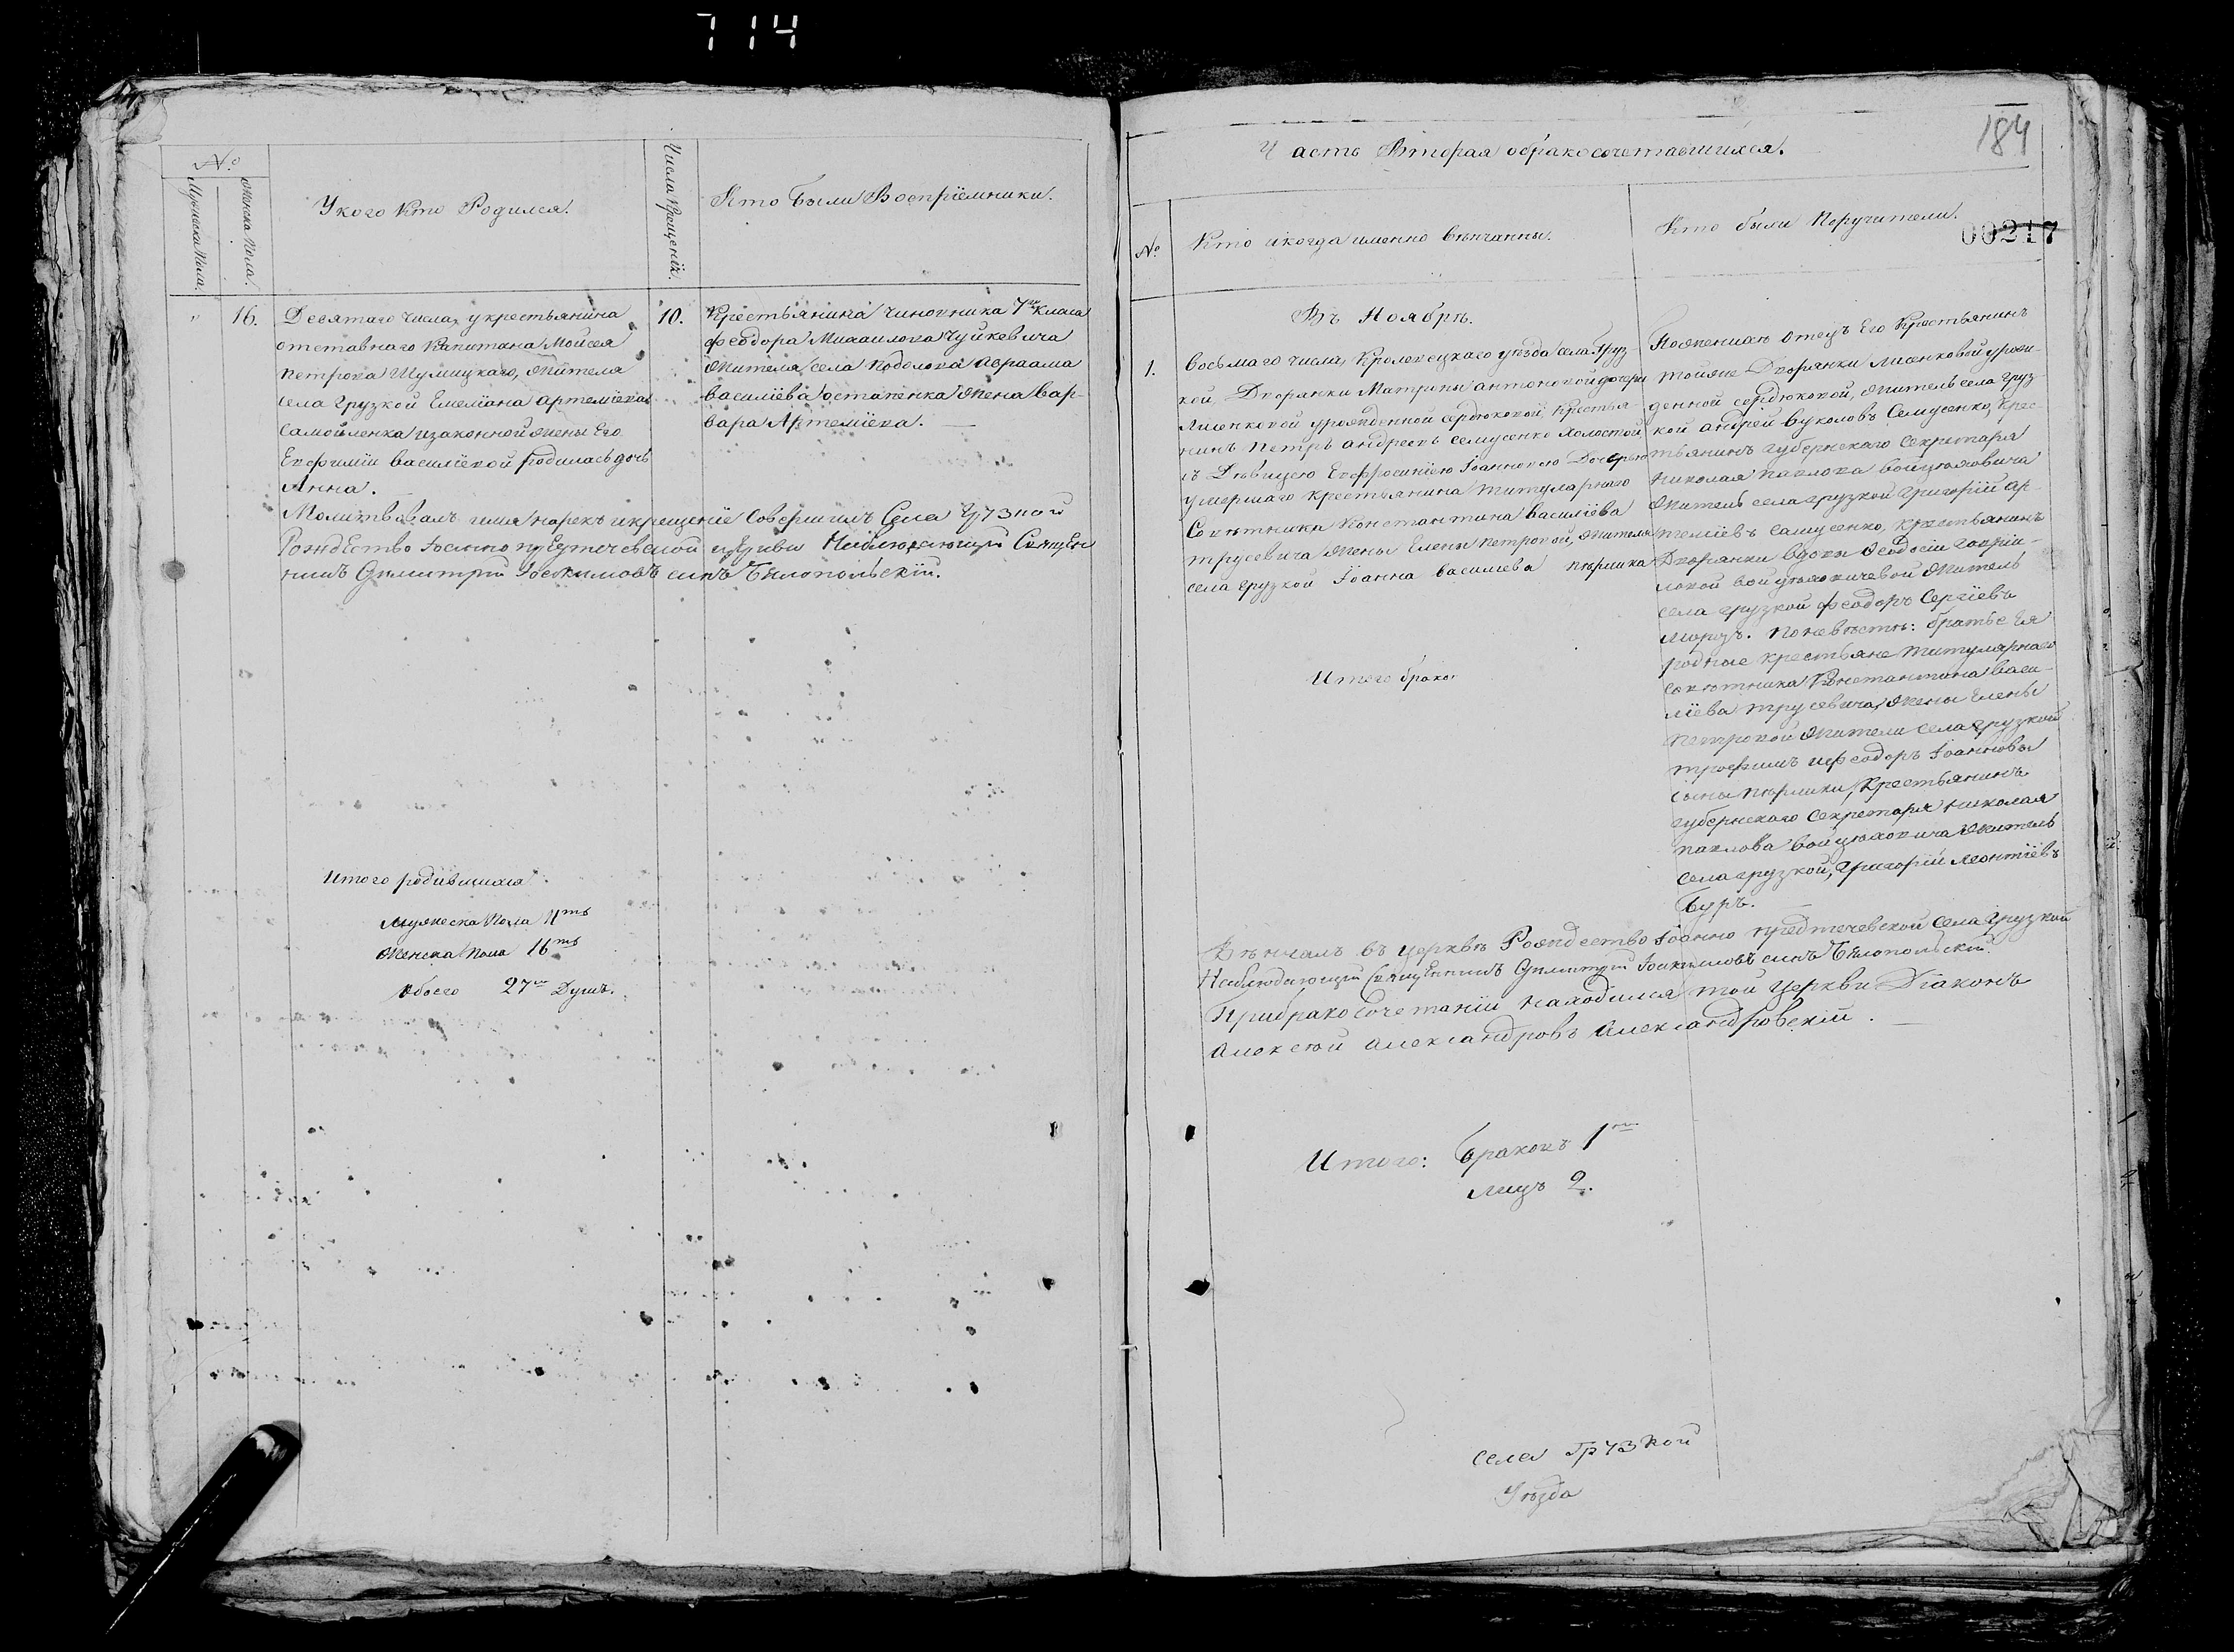 714
№
Мужеска пола.
Женска пола.
У кого кто Родился.
Числа Крещенія.
Кто были Воспріемники.
" 16.
Десятаго числа, у крестьянина
отставнаго капитана Мойсея
Петрова Шумицкаго, жителя
села Грузкой Емеліана Артеміева
Самойленка и законной жены Его
Евфиміи Василіевой родилась дочь
Анна.
10.
Крестьянина чиновника 7го класа
Феодора Михаилова Чуйкевича
жителя села Подолова Авраама
Василіева Остапенка жена Вар-
вара Артеміева.
Молитвовалъ имя нарекъ и крещеніе совершилъ Села Грузкой
Рождество Іоанно предтечевской церкви Наблюдающій Священ
никъ Димитрій Іоакимовъ сынъ Бѣлопольскій.
Итого родившихся
Мужеска Пола 11ть
Женска Пола 16ть
Обоего 27м Душъ.
184
Часть Вторая о бракосочетавшихся.
№
Кто и когда именно вѣнчанны.
Кто были Поручители.
00217
Въ Ноябрѣ.
1.
Восьмаго числа, Кролевецкаго уѣзда села Груз
кой, Дворянки Матрины Антоновой дочери
Лисенковой урожденной Сердюковой, Крестья-
нинъ Петръ Андреевъ Семусенко Холостой
съ Дѣвицею Евфросиніею Іоанновою Дочерью
умершаго крестьянина титулярнаго
Совѣтника Константина Василіева
Трусевича жены Елены Петровой, жителя
села Грузкой Іоанна Василіева Пырлика
Итого брако
По жениху отецъ Его Крестьянинъ
тойже Дворянки Лисенковой урож-
денной Сердюковой, житель села Груз
кой Андрей Вуколовъ Семусенко, Крес-
тьянинъ Губернскаго Секретаря
Николая Павлова Войцюховича
житель села Грузкой Григорій Ар-
теміевъ Самусенко, Крестьянинъ
Дворянки вдовы Феодосіи Гаврии-
ловой Войцюховичевой житель
села Грузкой Феодоръ Сергіевъ
Морозъ. По невѣстѣ: братье Ея
родные крестьяне титулярнаго
совѣтника Константина Васи-
ліева Трусевича, жены Елены
Петровой жители села Грузкой
Трофимъ и Феодоръ Іоанновы
сыны Пырлики, Крестьянинъ
Губернскаго Секретаря Николая
Павлова Войцюховича житель
села Грузкой, Григорій Леонтіевъ
Буръ.
Вѣнчалъ въ церквѣ Рождество Іоанно предтечевской Села Грузкой
Наблюдающій Священникъ Димитрій Іоакимовъ сынъ Бѣлопольскій.
При бракосочетаніи находился той Церкви Діаконъ
Алексѣй Александровъ Александровскій.
Итого: Браковъ 1нъ
Лицъ 2.
Села Грузкой
Уѣзда